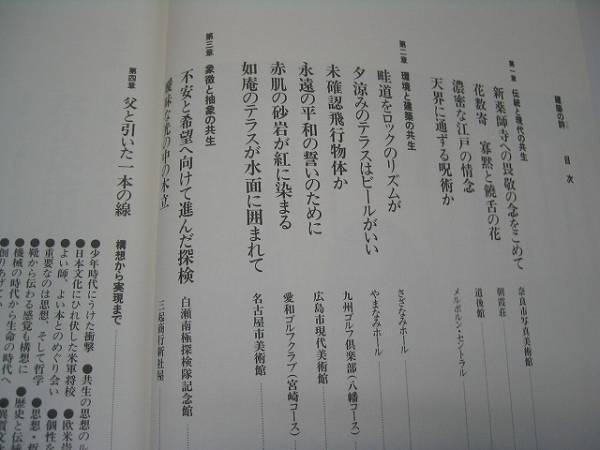 建築の詩　目次
第一章　伝統と現代の共生
新薬師寺への畏敬の念をこめて　奈良市写真美術館
花数寄　寡黙と饒舌の花　朝霞荘
濃密な江戸の情念　道後館
天界に通ずる呪術か　メルボルン・セントラル
第二章　環境と建築の共生
畦道をロックのリズムが　さざなみホール
夕涼みのテラスはビールがいい　やまなみホール
未確認飛行物体か　九州ゴルフ倶楽部(八幡コース)
永遠の平和の誓いのために　広島市現代美術館
赤肌の砂岩が紅に染まる　愛和ゴルフクラブ(宮崎コース)
如庵のテラスが水面に囲まれて　名古屋市美術館
第三章　象徴と抽象の共生
不安と希望へ向けて進んだ探検　白瀬南極探検隊記念館
曖昧な光の中の木立　三起商行新社屋
第四章　父と引いた一本の線
構想から実現まで
●少年時代にうけた衝撃　●共生の思想のル
●日本文化にひれ伏した米軍将校
●よい師、よい本とのめぐり会い　●欧米
●重要なのは思想、そして哲学　●個性を
●靴から伝わる感覚も構想に　●思想・哲
●機械の時代から生命の時代へ　●歴史と伝統
●創りあげて　●異質文